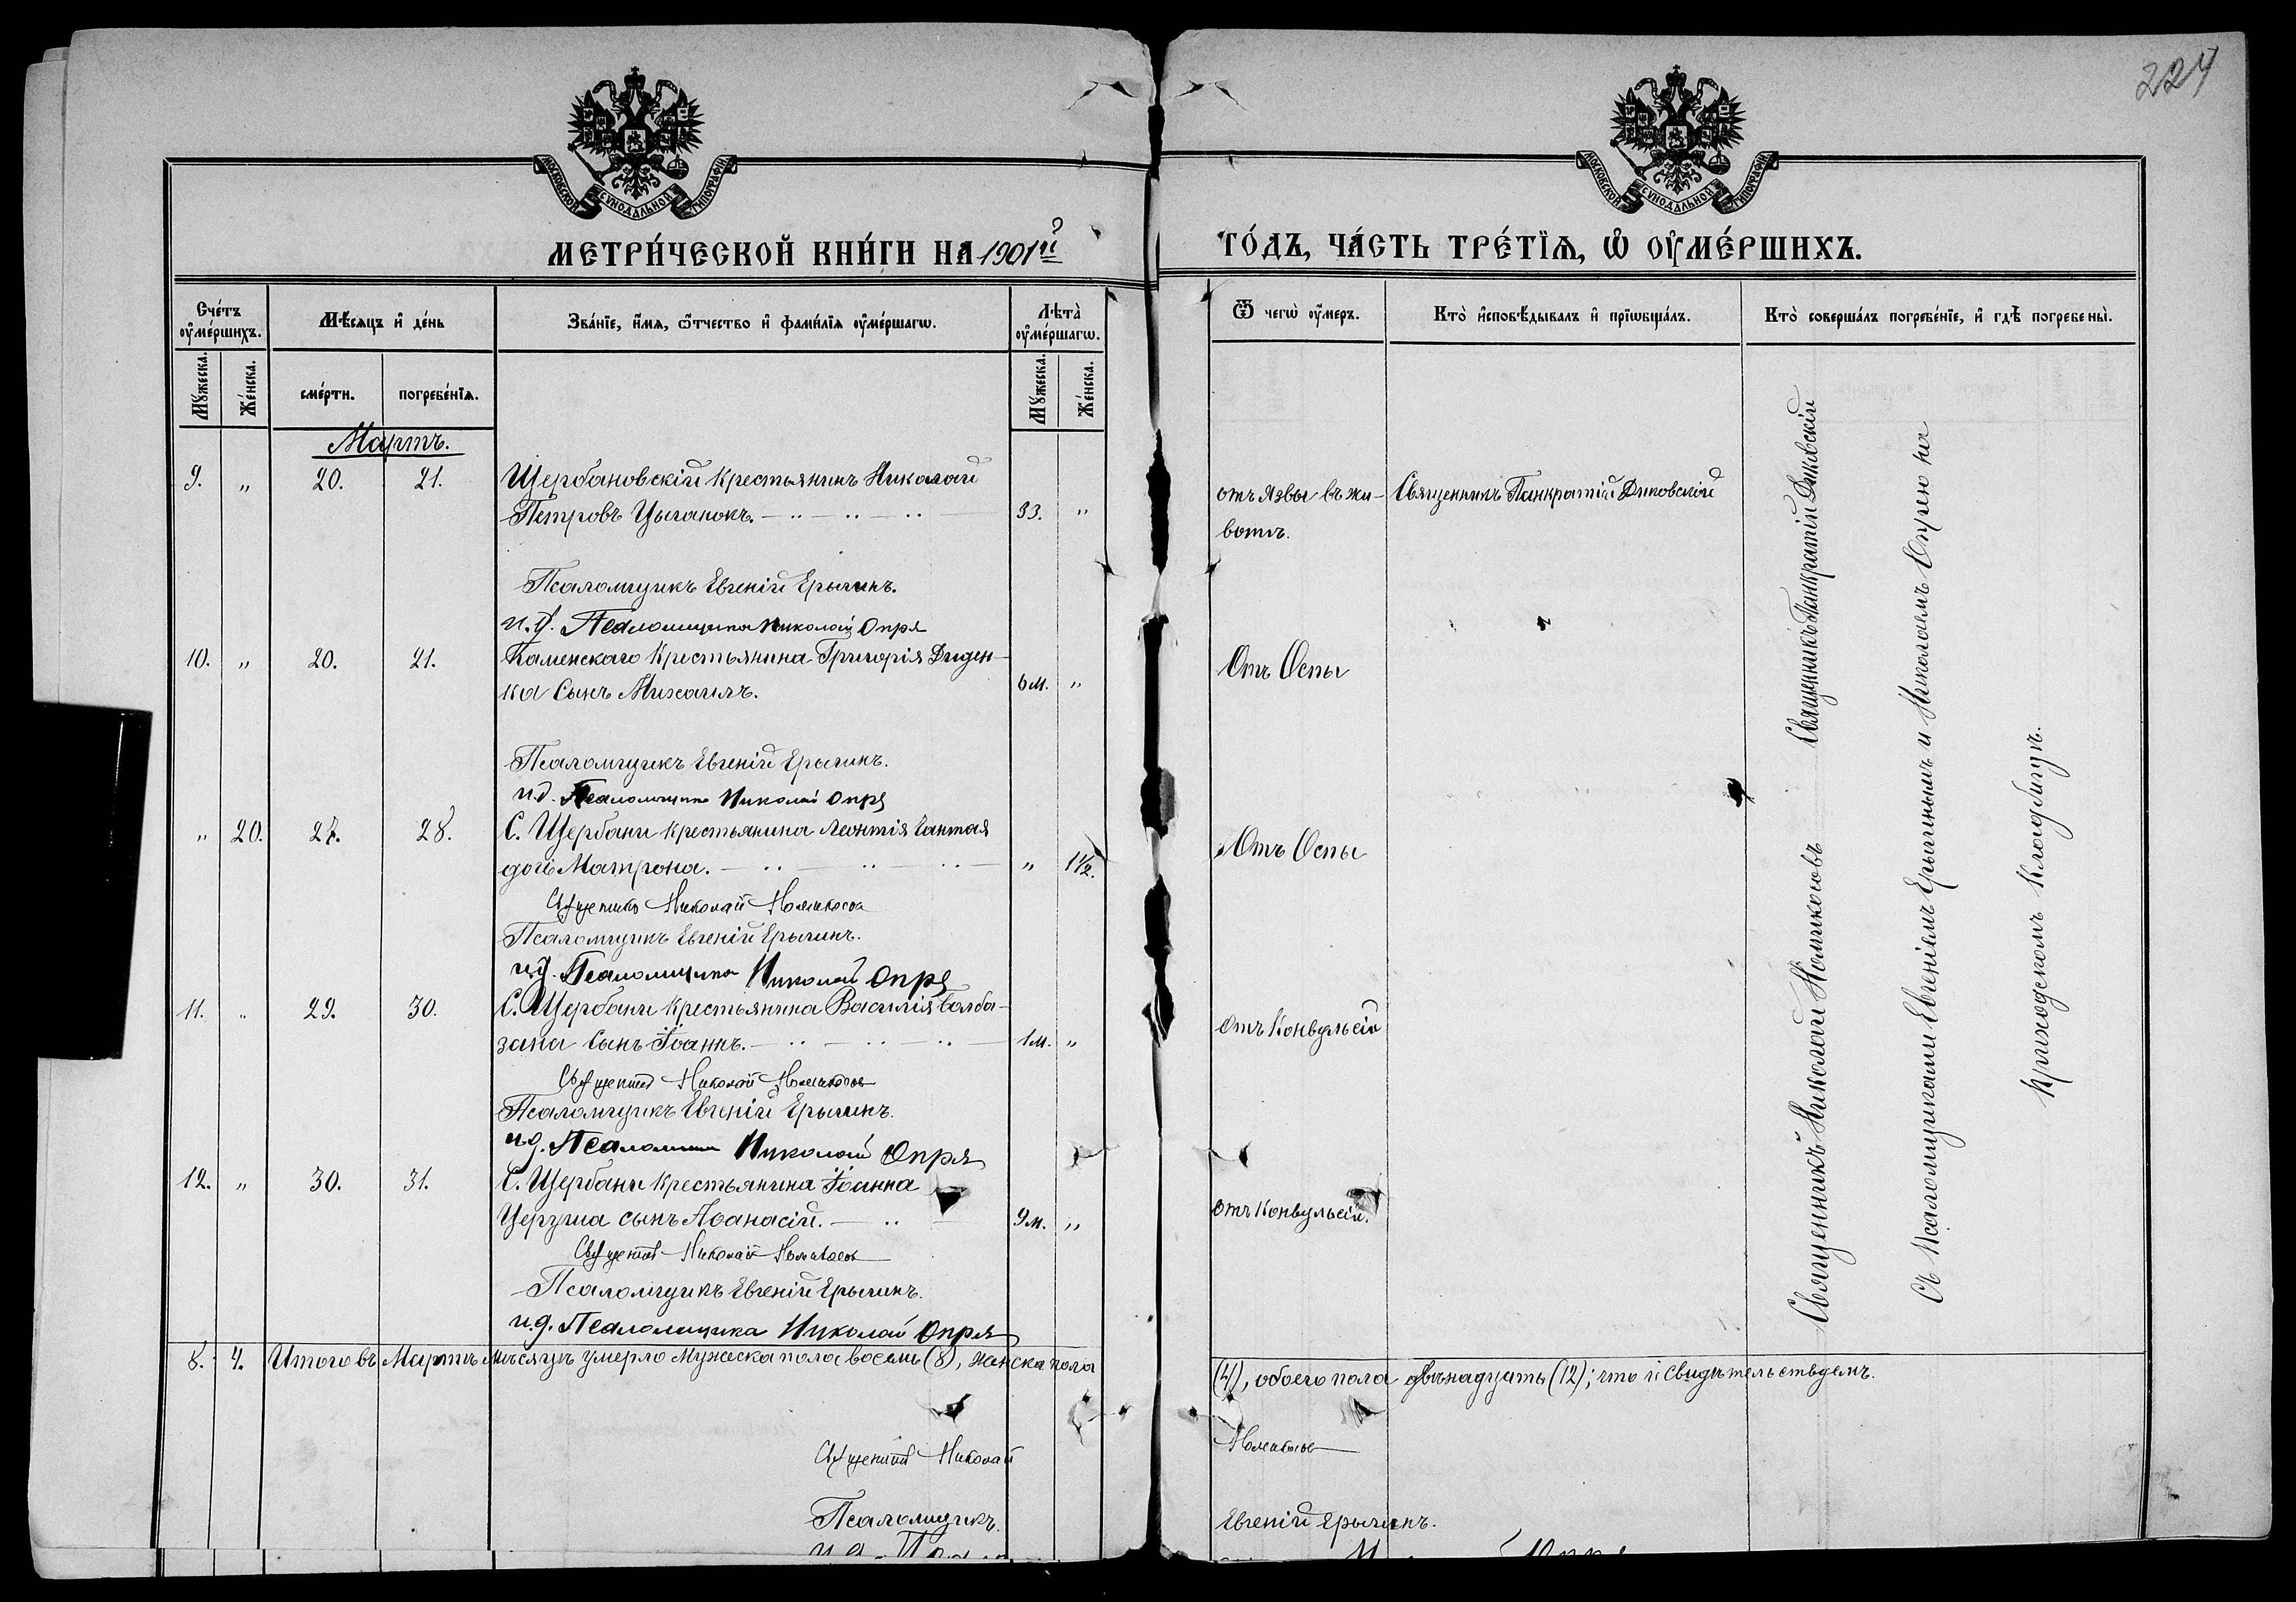 224
МОСКОВСКОЙ СѴНОДАЛЬНОЙ ТИПОГРАФІИ
МОСКОВСКОЙ СѴНОДАЛЬНОЙ ТИПОГРАФІИ
МЕТРИ́ЧЕСКОЙ КНИ́ГИ НА 1901й
ГО́ДЪ, ЧА́СТЬ ТРЕ́ТІѦ, Ѡ҆ ОУ҆МЕ́РШИХЪ.
Сче́тъ оу҆ме́ршихъ.
Мꙋ́жеска.
Же́нска.
Мѣ́сѧцъ и҆ де́нь
сме́рти.
погребе́нїѧ.
Зва́нїе, и҆́мѧ, ѻ҆́тчество и҆ фами́лїѧ оу҆ме́ршагѡ.
Лѣ́та оу҆ме́ршагѡ.
Мꙋ́жеска.
Же́нска.
Ѿ чегѡ̀ оу҆́меръ.
Кто̀ и҆сповѣ́дывалъ и҆ прїѡбща́лъ.
Кто̀ соверша́лъ погребе́нїе, и҆ гдѣ̀ погребены̀.
Мартъ.
9. " 20. 21. Щербановскій крестьянинъ Николай
Петровъ Цыганокъ. 33. "
отъ язвы въ жи-
вотѣ.
Священникъ Панкратій Диковскій
Псаломщикъ Евгеній Ерыгинъ.
и.д. Псаломщика Николай Опря
10. " 20. 21. Каменскаго крестьянина Григорія Диден-
ка Сынъ Михаилъ. 6 м. "
Отъ Оспы
Псаломщикъ Евгеній Ерыгинъ.
и.д. Псаломщика Николай Опря
" 20. 27. 28. С. Щербани крестьянина Леонтія
дочь Матрона. " 1½.
Отъ Оспы
Священникъ Николай
Псаломщикъ Евгеній Ерыгинъ.
и.д. Псаломщика Николай Опря
11. " 29. 30. С. Щербани крестьянина Василія Балба-
зана Сынъ Іоаннъ. 1 м. "
Отъ Конвульсій
Священникъ Николай
Псаломщикъ Евгеній Ерыгинъ.
и.д. Псаломщика Николай Опря
12. " 30. 31. С. Щербани крестьянина Іоанна
сынъ Аѳанасій. 9 м. "
Отъ Конвульсій.
Священникъ Николай
Псаломщикъ Евгеній Ерыгинъ.
и.д. Псаломщика Николай Опря
Священникъ Николай Священникъ Панкратій Диковскій
Съ Псаломщиками Евгеніемъ Ерыгинымъ и Николаемъ Опрею на
приходскомъ кладбищѣ.
8. 4. Итого въ Мартѣ мѣсяцѣ умерло мужеска пола восемь (8), женска пола
(4), обоего пола двѣнадцать (12); что и свидѣтельствуемъ.
Священникъ Николай
Псаломщикъ Евгеній Ерыгинъ.